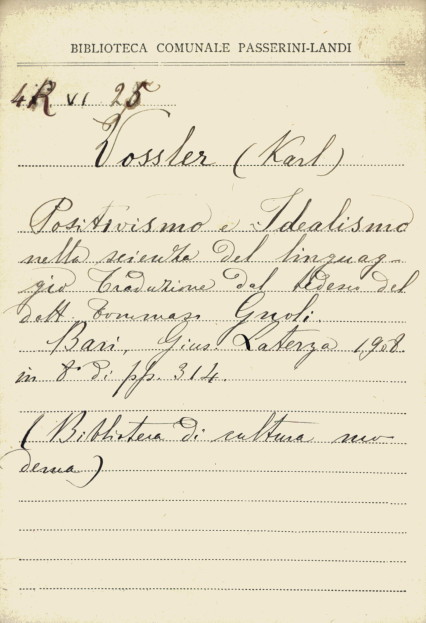 BIBLIOTECA COMUNALE PASSERINI-LANDI
4R VI 25
Vossler (Karl)
Positivismo e Idealismo
nella scienza del linguag-
gio Traduzione dal tedesco del
dott. Tommaso Gnoli.
Bari, Gius. Laterza 1908
in 8° di pp. 314.
(Biblioteca di cultura mo
derna)